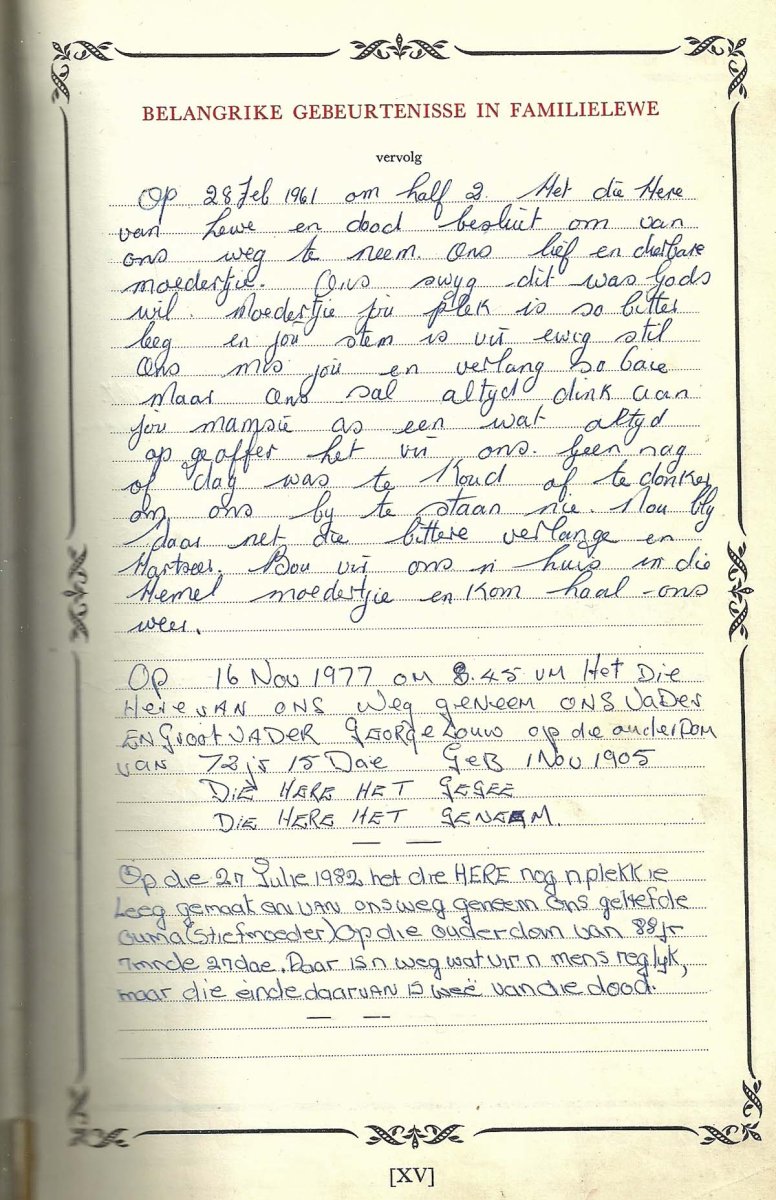 BELANGRIKE GEBEURTENISSE IN FAMILIELEWE
vervolg
Op 28 Feb 1961 om half 2 Het die Here
van Lewe en dood besluit om van
ons weg te neem. Ons lief en dierbare
moedertjie. Ons swyg dit was Gods
wil. Moedertjie jou plek is so bitter
leeg en jou stem is vir ewig stil
Ons mis jou en verlang so baie
Maar Ons sal altyd dink aan
jou mamsie as een wat altyd
op geoffer het vir ons. Geen nag
of dag was te koud of te donker
om ons by te staan nie. Nou bly
daar net die bittere verlange en
Hartseer. Bou vir ons n huis in die
Hemel moedertjie en kom haal ons
weer.
OP 16 Nov 1977 OM 8.45 VM Het Die
Here VAN ONS Weg geneem ONS VaDer
EN Groot VADER GEORGE Louw op die ouderDOM
VAN 72 jr 15 Dae GeB 1 Nov 1905
DIE HERE HET GEGEE
DIE HERE HET GENEEM.
Op die 27 Julie 1982 het die HERE nog n plekkie
Leeg gemaak en VAN ons weg geneem Ons geliefde
Ouma (Stiefmoeder) Op die ouderdom van 88 jr
7mnde 27dae. Daar is n weg wat vir n mens reg lyk,
maar die einde daarVAN is weë van die dood.
[XV]